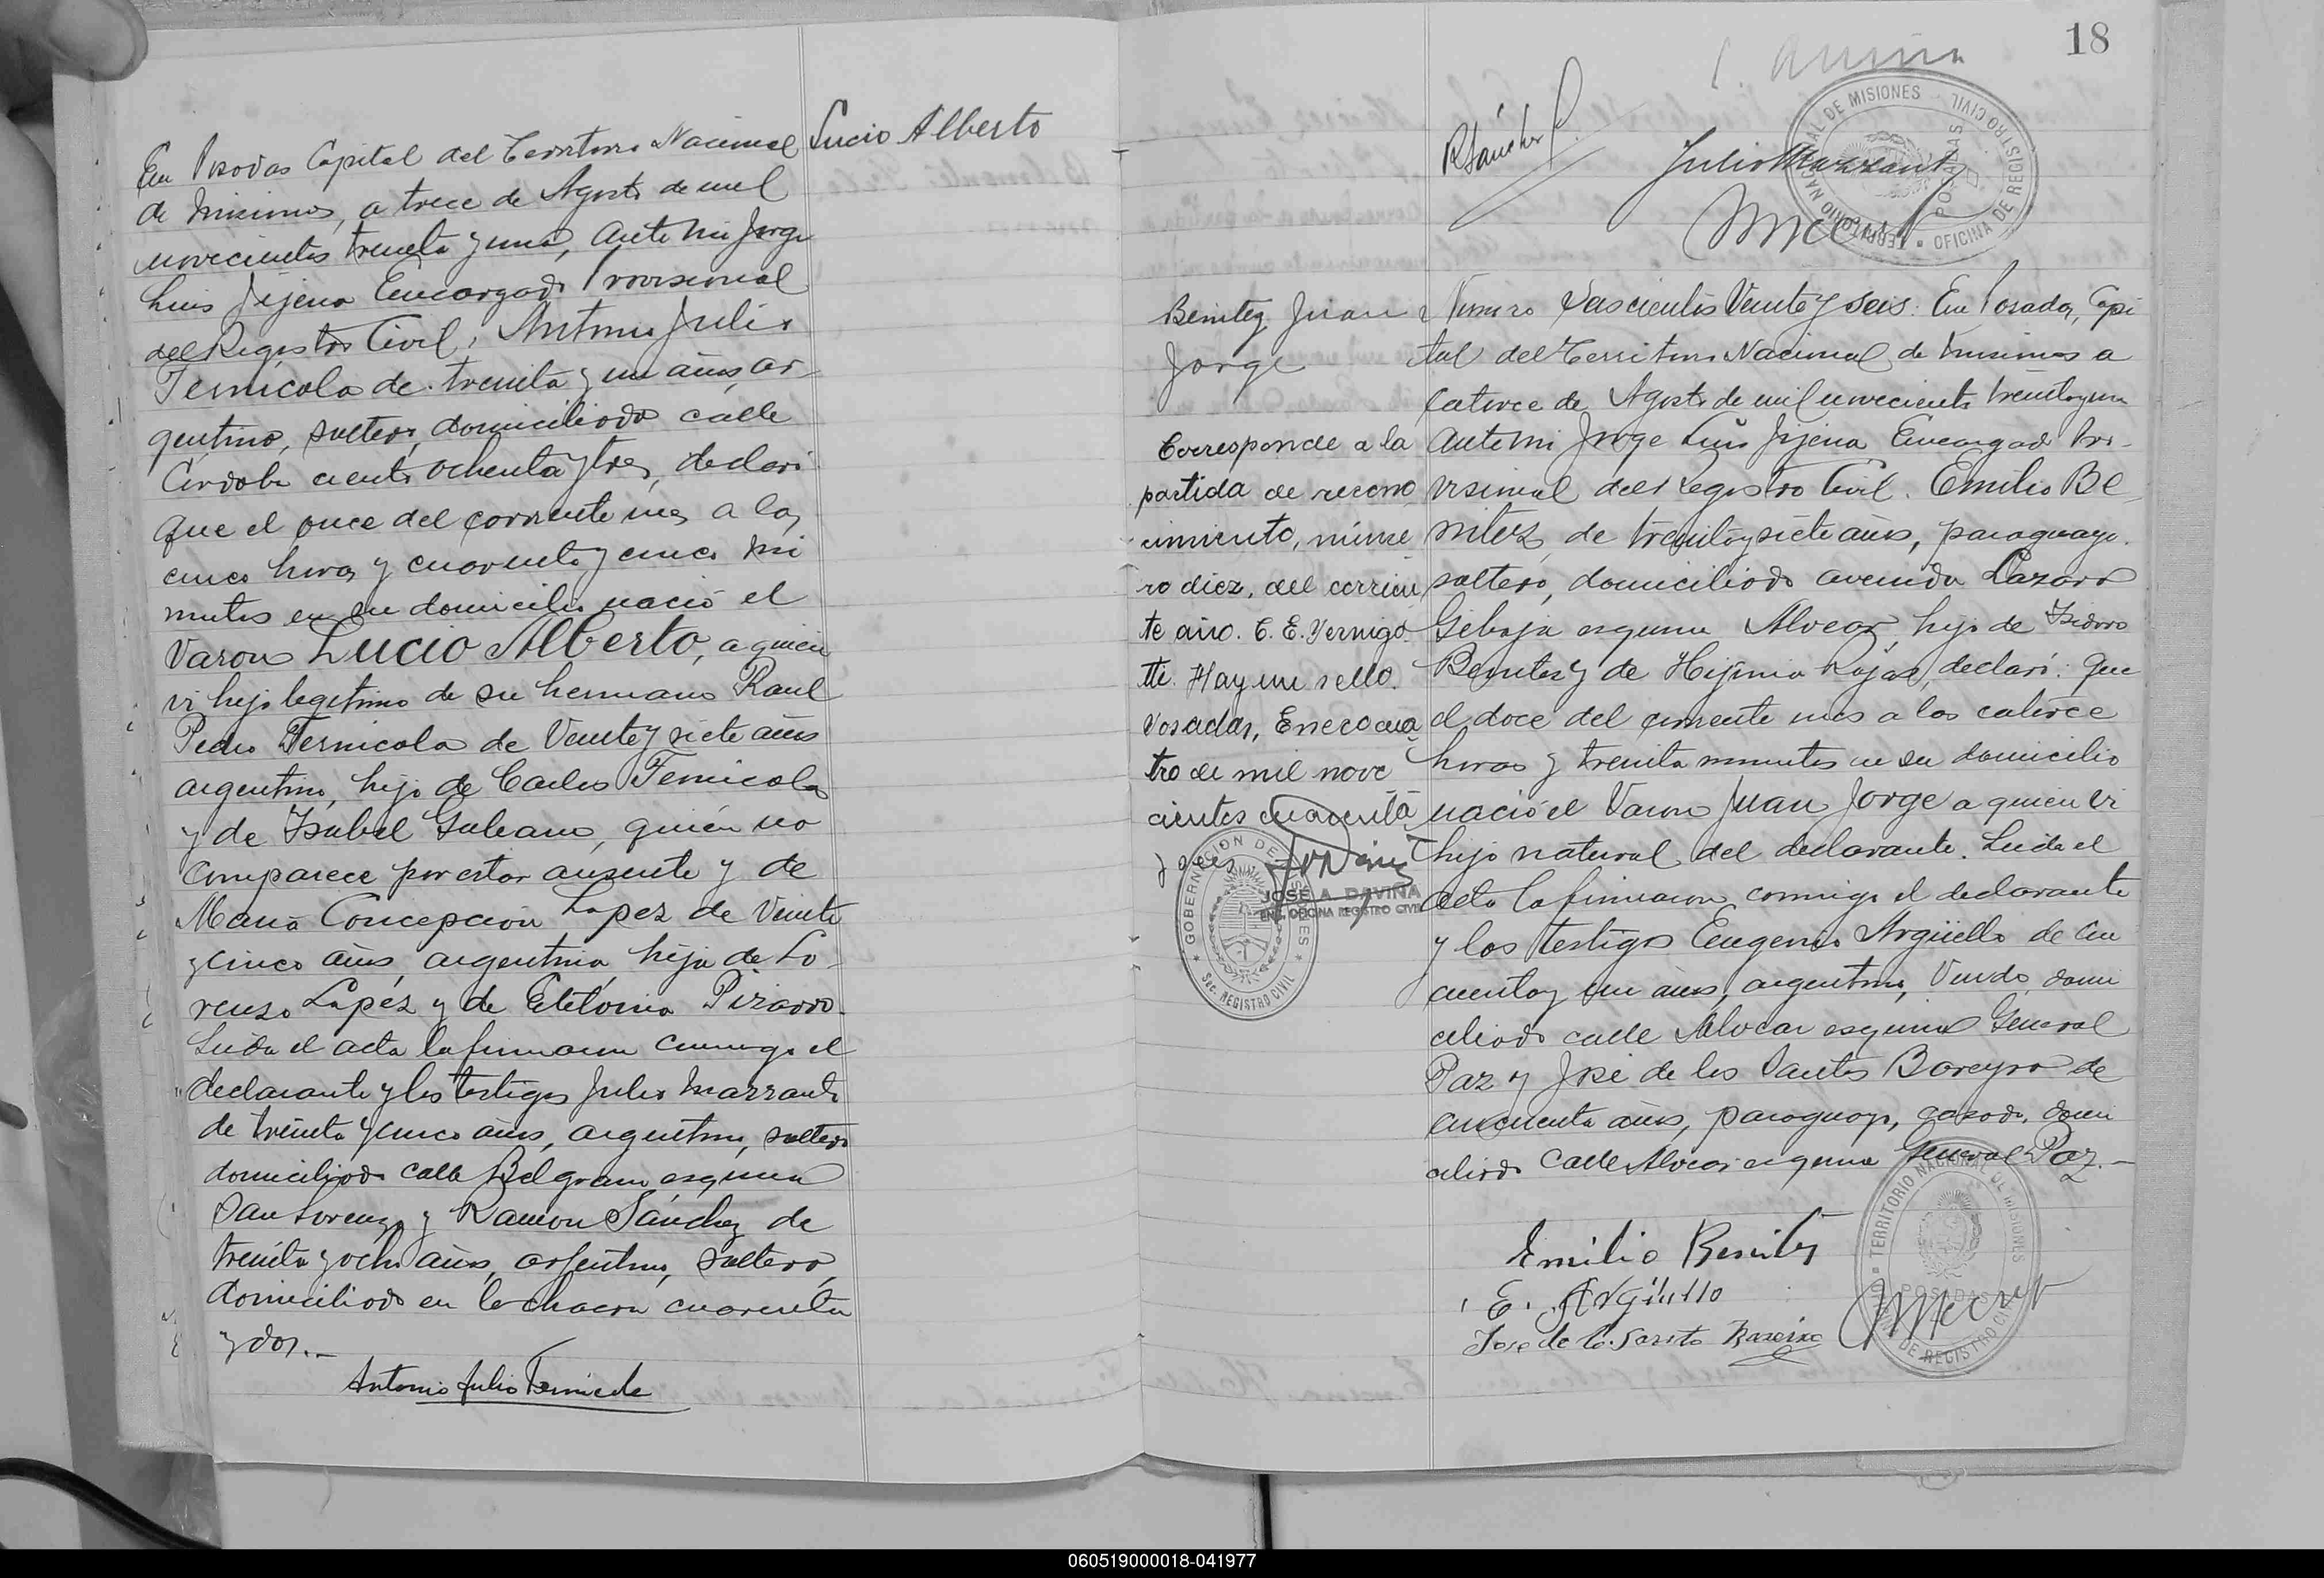 Lucio Alberto
En Posadas Capital del Territorio Nacional
de Misiones, a trece de Agosto de mil
novecientos treinta y uno, ante mi Jorge
Luis Jijena Encargado Provisional
del Registro Civil, Antonio Julio
Fernicola de treinta y un años, ar-
gentino, soltero, domiciliado calle
Córdoba ciento ochenta y tres, declaró
que el once del corriente mes a las
cinco horas y cuarenta y cinco mi
nutos en su domicilio nació el
Varon Lucio Alberto, a quien
vi hijo legitimo de su hermano Raul
Pedro Fernicola de Veinte y siete años
argentino, hijo de Carlos Fernicola
y de Isabel Galeano, quién no
comparece por estar ausente y de
Maria Concepción Lopez de Veinte
y cinco años, argentina, hija de Lo-
renzo Lopéz y de Pizarro.
Leida el acta la firmaron conmigo el
declarante y los testigos Julio Marzanti
de treinta y cinco años, argentino, soltero
domiciliado calle Belgrano esquina
San Lorenzo y Ramon Sánchez de
treinta y ocho años, argentino, soltero,
domiciliado en la chacra cuarenta
y dos.—
Antonio Julio Fernicola
18
RSánchez
Julio Marzanti
TERRITORIO NACIONAL DE MISIONES
OFICINA DE REGISTRO CIVIL
POSADAS
Benitez Juan
Jorge
Corresponde a la
partida de recono
cimiento, núme
ro diez, del corrien
te año. C. E. Vernigo
tti. Hay un sello.
Posadas, Enero cua
tro de mil nove
cientos cuarenta
y
JOSÉ A. DAVIÑA
ENC. OFICINA REGISTRO CIVIL
GOBERNACION DE MISIONES
Sec. REGISTRO CIVIL
Numero Seiscientos Veinte y seis. En Posadas, Capi
tal del Territorio Nacional de Misiones a
Catorce de Agosto de mil novecientos treinta y uno
ante mi Jorge Luis Jijena Encargado Pro-
visional del Registro Civil. Emilio Be
nitez, de treinta y siete años, paraguayo.
soltero, domiciliado avenida Lazaro
Gibaja esquina Alvear, hijo de Isidoro
Benitez y de Hijinia Rojas, declaró: Que
el doce del corriente mes a las catorce
horas y treinta minutos en su domicilio
nació el Varon Juan Jorge a quien vi
hijo natural del declarante. Leida el
acta la firmaron conmigo el declarante
y los testigos Eugenio Argüello de cin
cuenta y un años, argentino, Viudo, domi
ciliado calle Alvear esquina General
Paz y José de los Santos Bareyro de
cincuenta años, paraguayo, casado, domi
ciliado Calle Alvear esquina General Paz.—
Emilio Benitez
E. Argüello
Jose de lo. Santo Bareiro
TERRITORIO NACIONAL DE MISIONES
POSADAS
OFICINA DE REGISTRO CIVIL
060519000018-041977